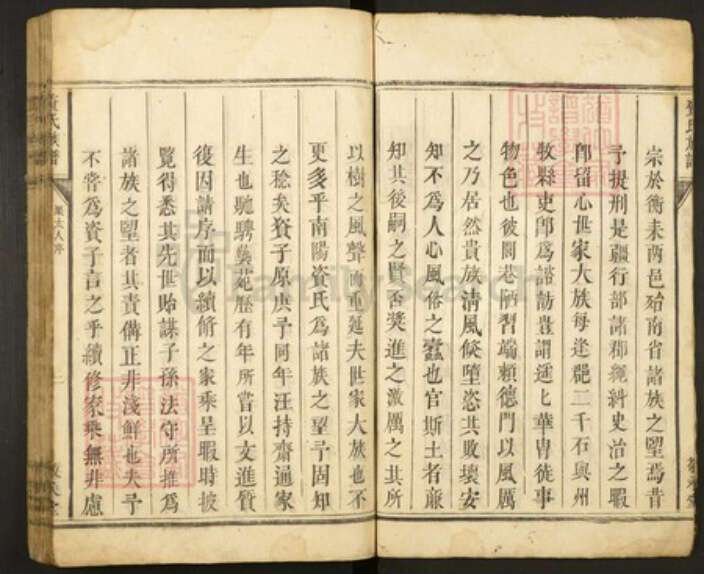 宗於衡耒兩邑殆南省諸族之望焉昔
予提刑是疆行部諸郡綱糾史治之暇
即留心世家大族每逢二千石與州
牧縣吏即為諮訪豈謂華冑徒事
物色也彼閭巷陋習端賴德門以風厲
之乃居然貴族清風倐墮恣其敗壞安
知不為人心風俗之蠹也官斯土者廉
知其後嗣之賢否獎進之激厲之其所
以樹之風聲而重延夫世家大族也不
更多乎南陽資氏為諸族之望予固知
之稔矣資子原庚予同年汪持齋通家
生也馳騁藝苑歷有年所嘗以文進質
復因請序而以續脩之家乘呈暇時披
覽得悉其先世貽謀子孫法守所推為
諸族之望者其責備正非淺鮮也夫予
不嘗為資子言之乎續修家乘無非慮
資氏族譜
FamilySearch